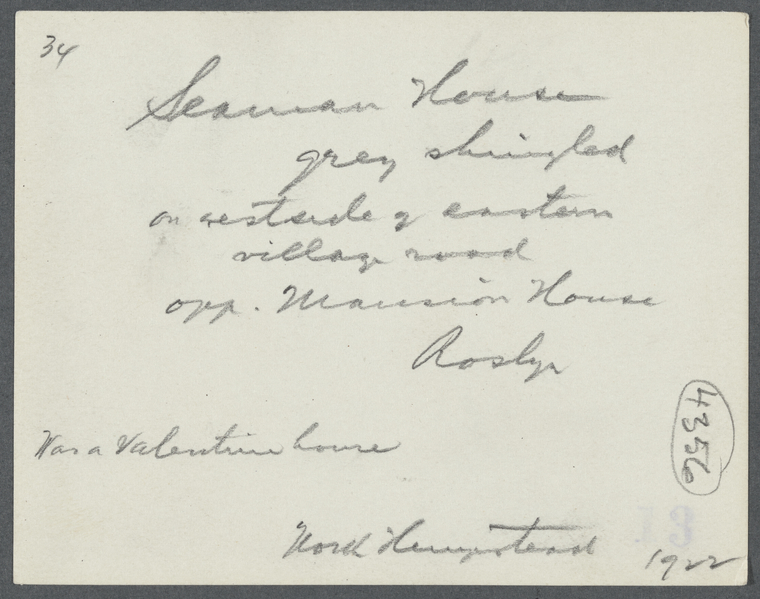 34
Seaman House
grey shingled
on westside of eastern
village road
opp. Mansion House
Roslyn
4356
Was a Valentine house
North Hempstead
1922